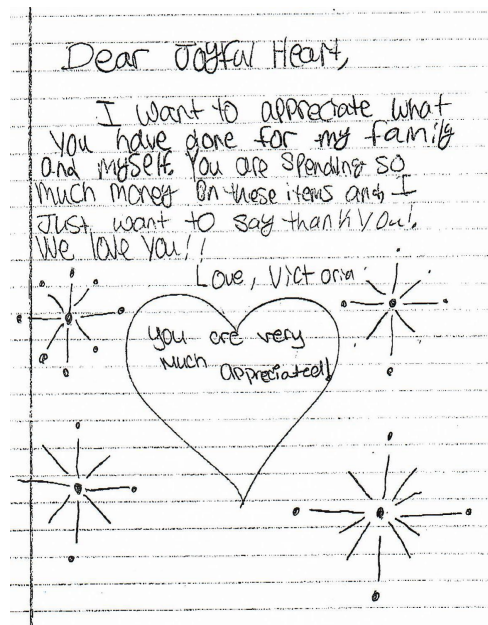 Dear Joyful Heart,
I want to appreciate what
you have done for my family
and myself. You are spending so
much money on these items and, I
Just want to say thank you!.
We love you!!
Love, Victoria
you are very
much appreciated!